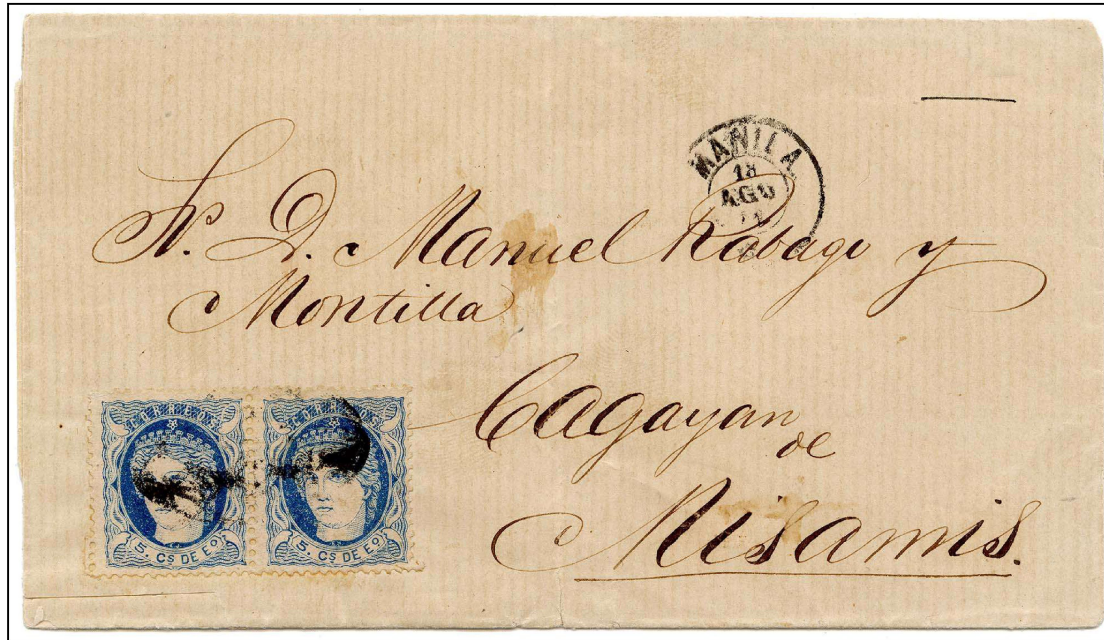 MANILA
18
AGO
Sr. D. Manuel Rabago y
Montilla
Cagayan
de
Misamis.
CORREOS
CORREOS
5. Cs DE Eo
5. Cs DE Eo